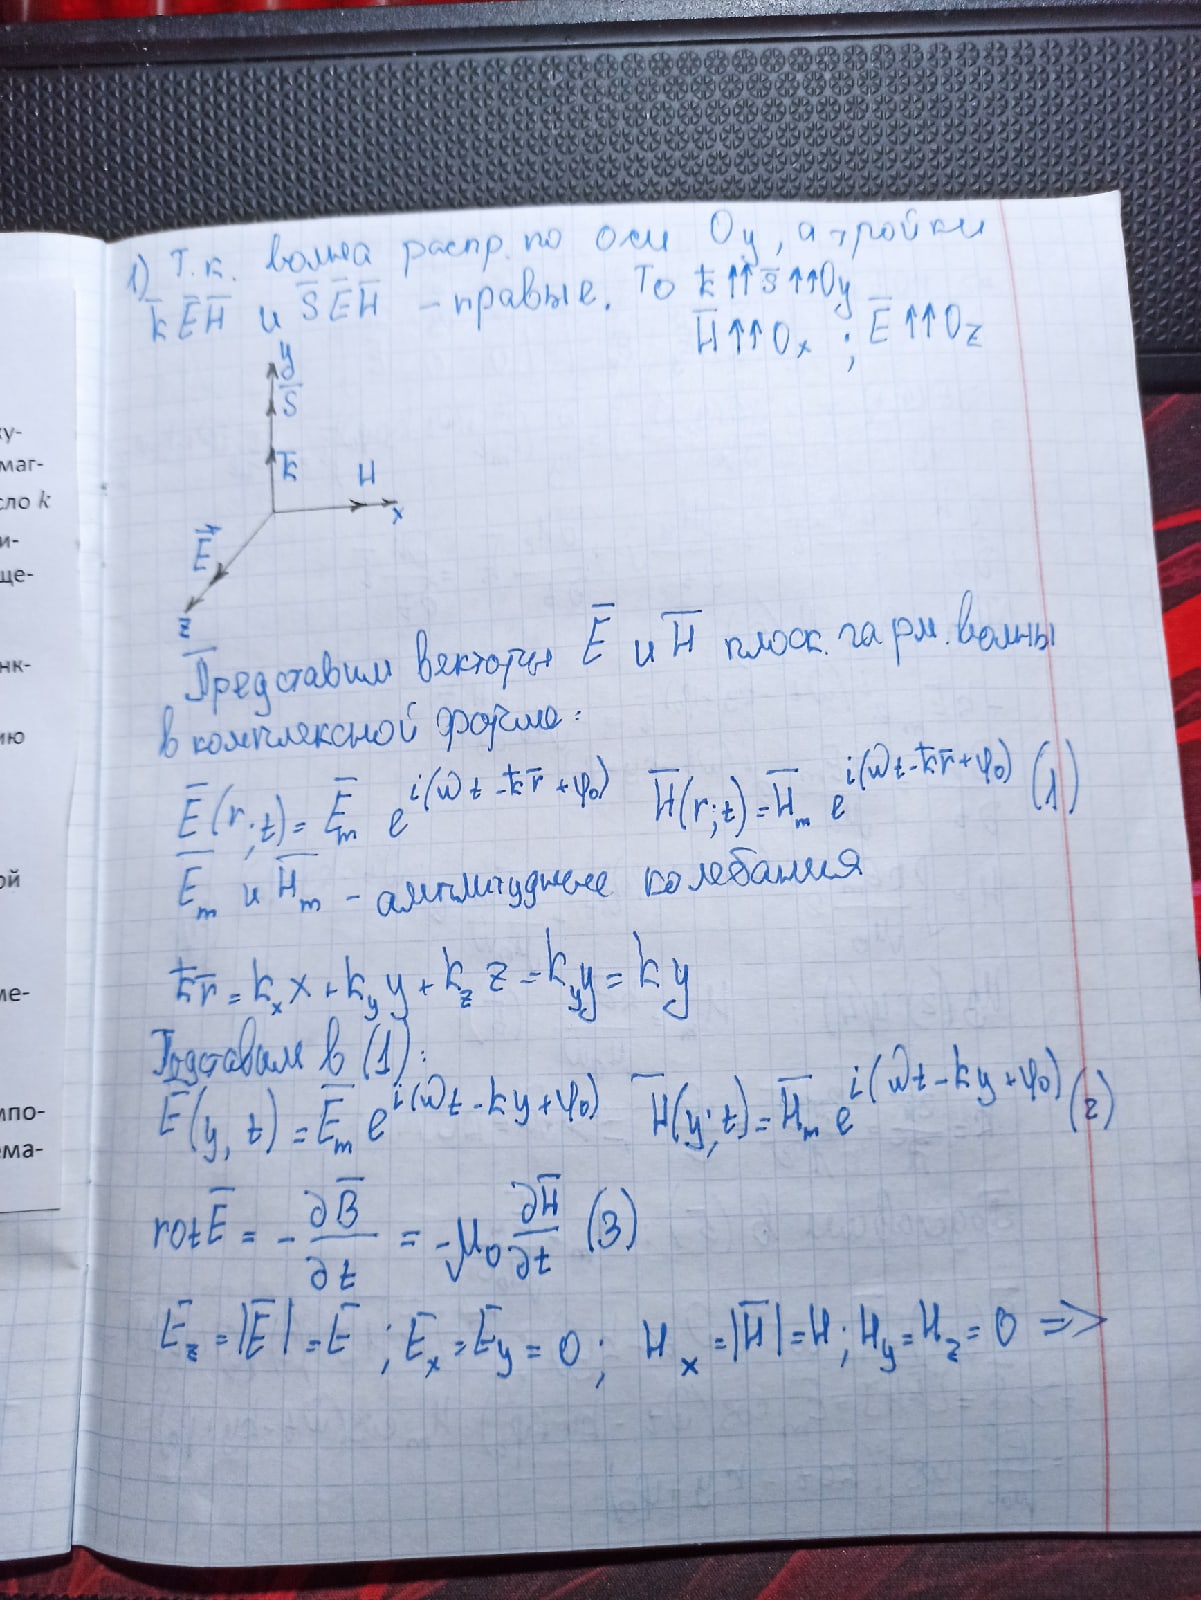 ку-
маг-
сло k
и-
ще-
нк-
ию
ой
ме-
мпо-
ема-
1) Т.к. волна распр. по оси Oy, а тройки
k̅ E̅ H̅ и S̅ E̅ H̅ - правые. То k̅ ↑↑ S̅ ↑↑ Oy
H̅ ↑↑ Ox ; E̅ ↑↑ Oz
y
S̅
k̅
H
x
E̅
z
Представим векторы E̅ и H̅ плоск. гарм. волны
в комплексной форме:
E̅(r;t) = E̅ₘ e^i(ωt - k̅r̅ + φ₀) H̅(r;t) = H̅ₘ e^i(ωt - k̅r̅ + φ₀) (1)
E̅ₘ и H̅ₘ - амплитудные колебания
k̅r̅ = kₓx + k_y y + k_z z = k_y y = ky
Подставим в (1):
E̅(y, t) = E̅ₘ e^i(ωt - ky + φ₀) H̅(y;t) = H̅ₘ e^i(ωt - ky + φ₀) (2)
rot E̅ = - ∂B̅/∂t = -μ₀ ∂H̅/∂t (3)
E_z = |E̅| = E ; Eₓ = E_y = 0 ; Hₓ = |H̅| = H ; H_y = H_z = 0 =>